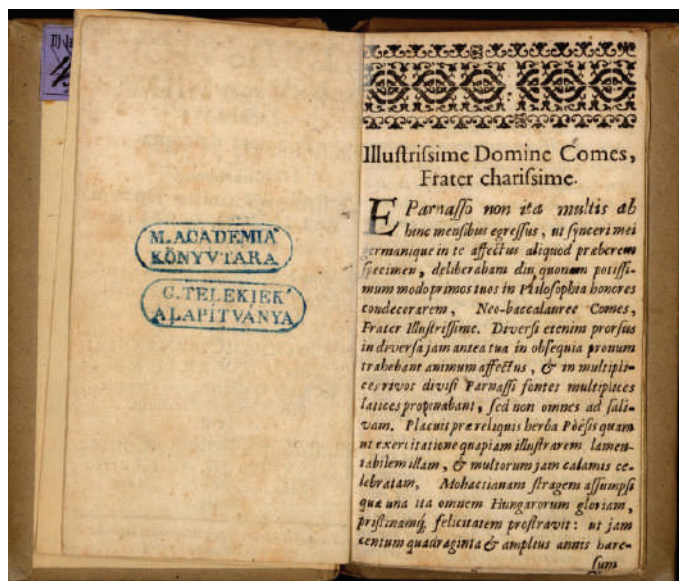 M. ACADEMIA
KÖNYVTARA
G. TELEKIEK
ALAPITVÁNYA
Illuſtriſsime Domine Comes,
Frater chariſsime.
E Parnaſſo non ita multis ab
hinc menſibus egreſſus, ut ſynceri mei
germanique in te affectus aliquod præberem
ſpecimen, deliberabam diu quonam potiſſi-
mum modo primos tuos in Philoſophia honores
condecorarem, Neo-baccalauree Comes,
Frater Illuſtriſſime. Diverſi etenim prorſus
in diverſa jam antea tua in obſequia pronum
trahebant animum affectus, & in multipli-
ces rivos diviſi Parnaſſi fontes multiplices
latices propinabant, ſed non omnes ad ſali-
vam. Placuit præ reliquis herba Pöeſis quam
ut exercitatione quapiam illuſtrarem lamen-
tabilem illam, & multorum jam calamis ce-
lebratam, Mohactianam ſtragem aſſumpſi
quæ una ita omnem Hungarorum gloriam,
priſtinamq́; felicitatem proſtravit: ut jam
centum quadraginta & amplius annis hære-
ſum